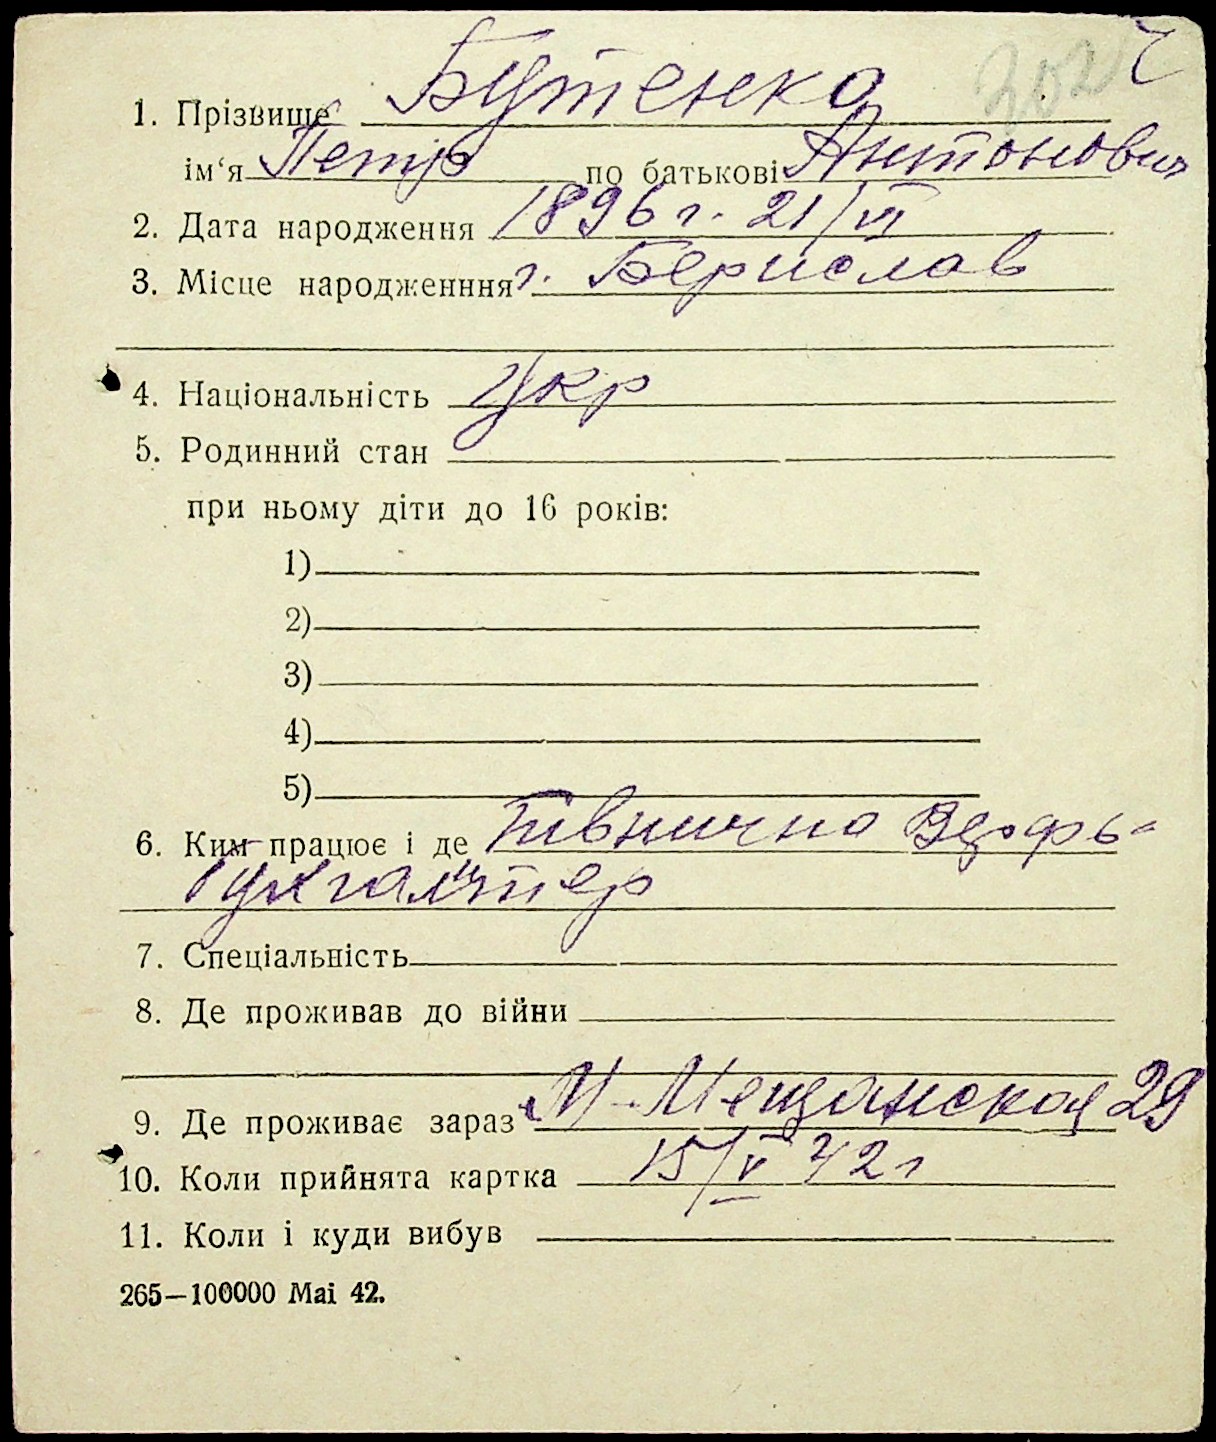 302 ч
1. Прізвище Бутенко
ім‘я Петр по батькові Антонович
2. Дата народження 1896 г. 21/VI
3. Місце народженння г. Берислав
4. Національність Укр
5. Родинний стан
при ньому діти до 16 років:
1)
2)
3)
4)
5)
6. Ким працює і де Північна
бухгалтер
7. Спеціальність
8. Де проживав до війни
9. Де проживає зараз М-Мещанская 29
10. Коли прийнята картка 15/V 42 г
11. Коли і куди вибув
265—100000 Mai 42.